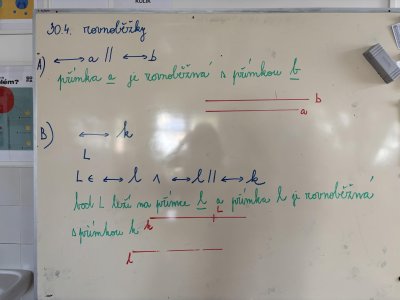 30.4. rovnoběžky
A) ↔ a || ↔ b
přímka a je rovnoběžná s přímkou b
b
a
B) ↔ k
L
L ∈ ↔ l ∧ ↔ l || ↔ k
bod L leží na přímce l a přímka l je rovnoběžná
s přímkou k
L
k
l